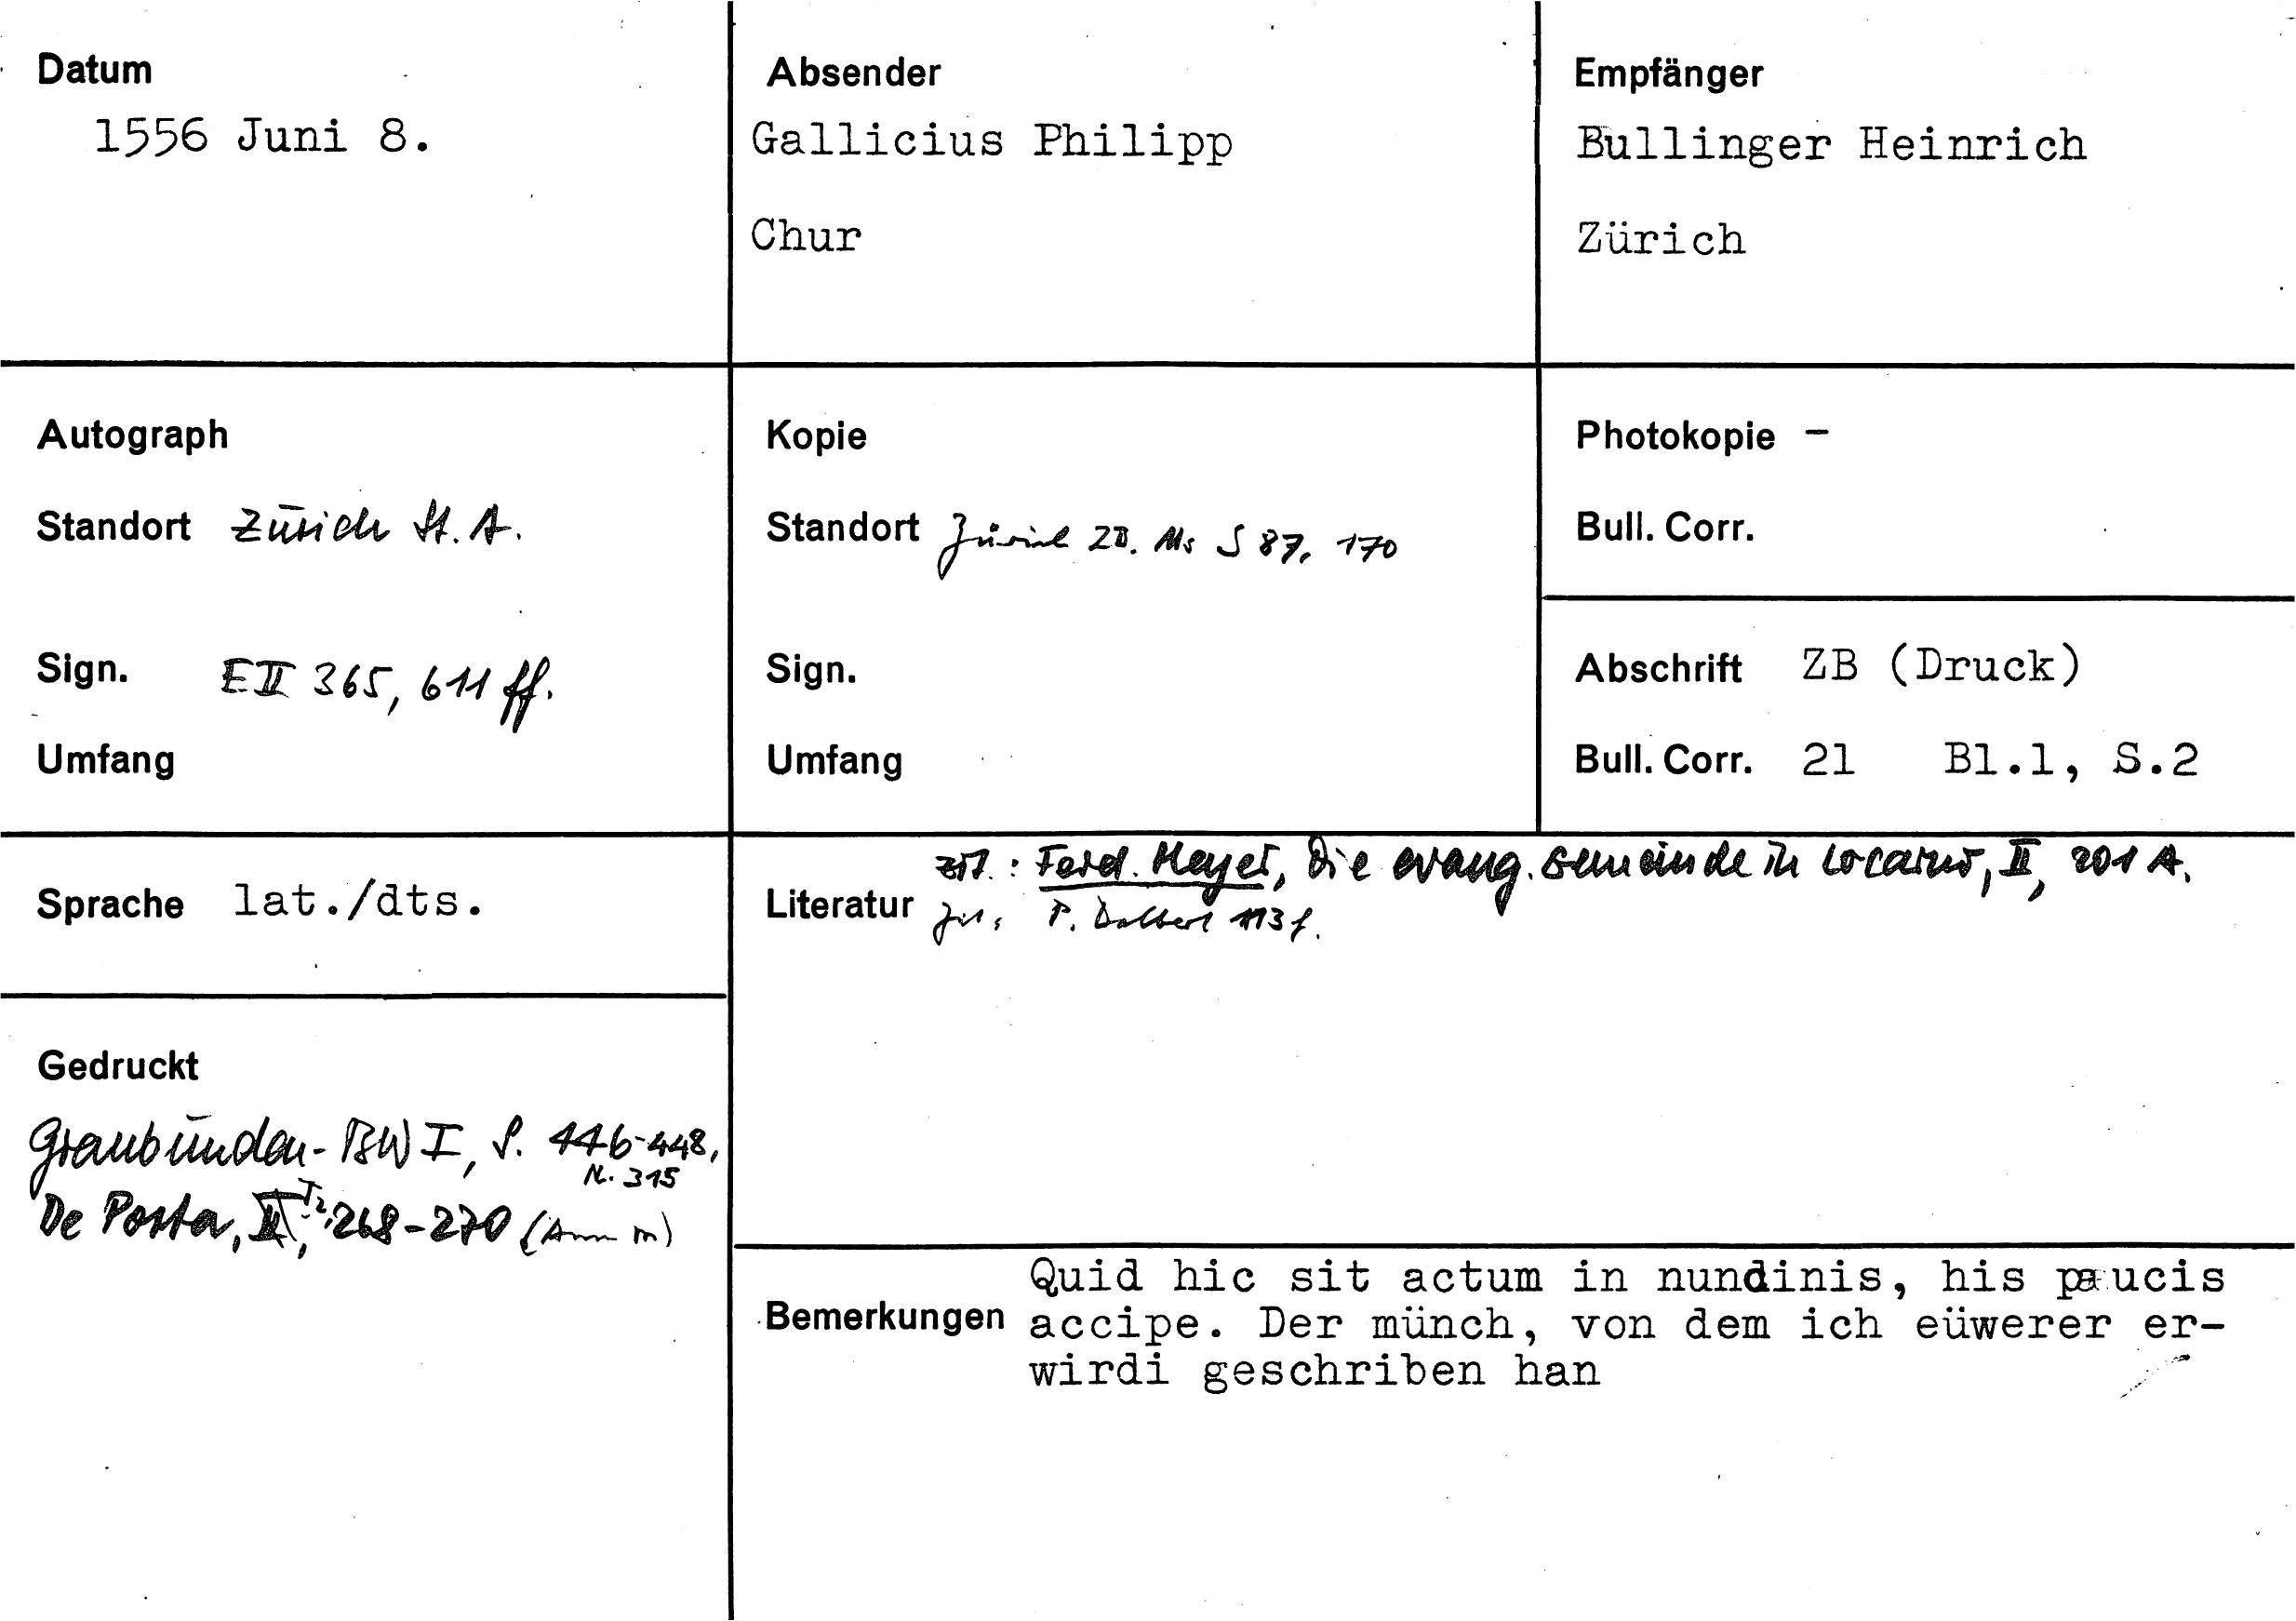 Datum
1556 Juni 8.
Absender
Gallicius Philipp
Chur
Empfänger
Bullinger Heinrich
Zürich
Autograph
Standort Zürich St. A.
Sign. E II 365, 611 ff.
Umfang
Kopie
Standort Zürich ZB. Ms S 87, 170
Sign.
Umfang
Photokopie -
Bull. Corr.
Abschrift ZB (Druck)
Bull. Corr. 21 Bl.1, S.2
Sprache lat./dts.
Literatur
zit.: Ferd. Meyer, Die evang. Gemeinde in Locarno, II, 201 A.
zit. P. Dalbert 113 f.
Gedruckt
Graubünden-BW I, S. 446-448,
N. 315
De Porta, 268-270 (Anm m)
Bemerkungen
Quid hic sit actum in nundinis, his paucis
accipe. Der münch, von dem ich eüwerer er-
wirdi geschriben han